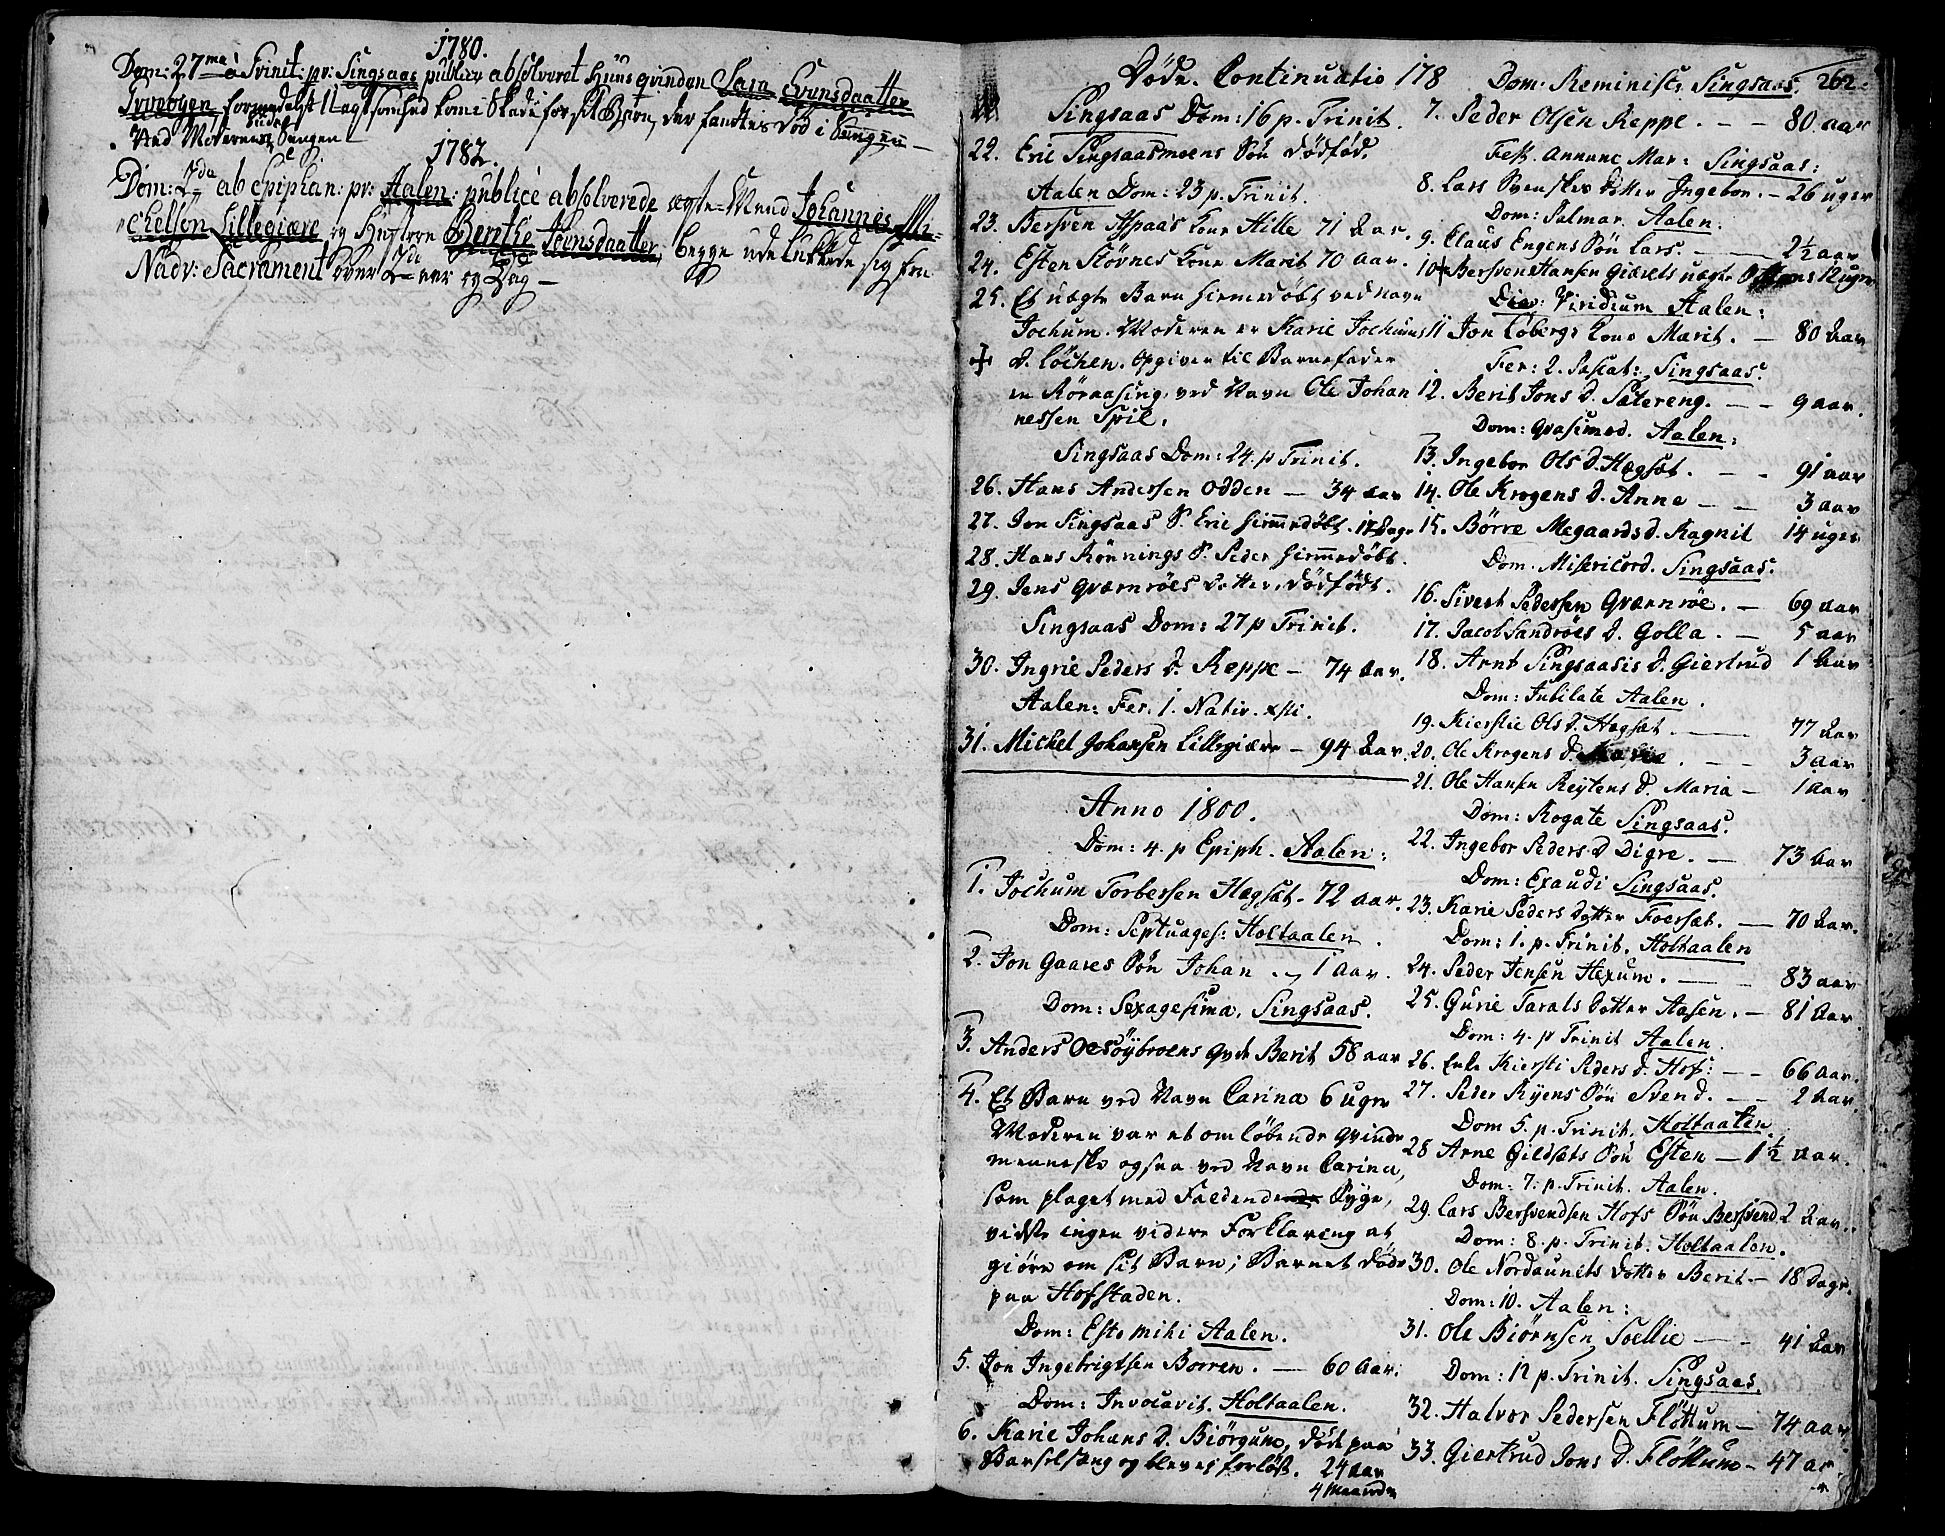 1780.
Dom: 27ma à Trinit: pr: Singsaas publicè absolveret Huusqvinden Sara Evensdaatter
formedelst Uagtsomhed kome Skade for sit Barn, der fandtes død i Sengen
Ved Moderens Side i Sengen
1782.
Dom: 2da ab Epiphan: pr: Aalen: publicè absolverede ægte-Mand Johannes Mi=
chelsøn Lillegiære og Hustroe Berthe Joensdaatter, begge udelukkede sig fra
Nadv: Sacrament over 2de aar og Dag —
Døde. Continuatio 178
Singsaas Dom: 16 p. Trinit.
22. Eric Singsaasmoens Søn dødfød.
Aalen Dom: 23 p. Trinit.
23. Bersven Aspaas Kone Sille 71 Aar.
24. Esten Støvnes Kone Marit 70 aar.
25. Et uægte Barn hiemmedøbt ved Navn
Jochum. Moderen er Karie Jochums
d. Løchen. Opgiven til Barnefader
en Røraasing ved Navn Ole Johan
nessen Spil.
Singsaas Dom: 24. p Trinit.
26. Hans Andersen Odden — 34 aar
27. Jon Singsaas S. Eric hiemmedøbt. 17 Dage
28. Hans Rønnings S. Peder hiemmedøbt.
29. Jens Grænrøes Datter, dødfødt.
Singsaas Dom: 27 p Trinit.
30. Ingrie Peders d. Reppe — 74 Aar.
Aalen: Fer. 1. Nativ. xsti.
31. Michel Johansen Lillegiære — 94 Aar.
Anno 1800.
Dom: 4. p Epiph. Aalen:
1. Jochum Torbersen Hægsæt - 72 aar.
Dom: Septuages: Holtaalen.
2. Jon Gaares Søn Johan — 1 Aar.
Dom: Sexagesima, Singsaas.
3. Anders Oesøybroens Qvde Berit 58 aar
4. Et Barn ved Navn Carina 6 uger
Moderen var et omløbende Qvinde
menneske ogsaa ved Navn Carina,
som plaget med Faldende Syge,
vidste ingen videre Forklaring at
giøre om sit Barn; Barnet døde
paa Hofstaden.
Dom: Esto mihi Aalen.
5. Jon Ingebrigtsen Borren. — 60 Aar.
Dom: Invocavit. Holtaalen.
6. Karie Johans d. Biørgum, døde paa
Barselsæng og blev ej forløst. 24 aar
4 Maaneder
Dom: Reminisc. Singsaas. 262.
7. Peder Olsen Reppe. — — 80 aar
Fest. Annunc Mar: Singsaas:
8. Lars Svenskes Datter Ingebor. — 26 uger
Dom: Palmar. Aalen.
9. Claus Engens Søn Lars. — 2½ aar
10 Bersven Hansen Giæsets uægte 12 uger
Die: Viridium Aalen:
11 Jon Løbergs Kone Marit. — 80 Aar
Fer: 2. Pascat: Singsaas.
12. Berit Jons d. Sætereng. — — 9 aar.
Dom: Qvasimod. Aalen:
13. Ingebor Ols d. Hægsæt. — — 91 aar
14. Ole Krogens d. Anne — — 3 aar
15. Børre Megaards d. Ragnil 14 uger
Dom. Misericord. Singsaas.
16. Sivert Pedersen Grænrøe. — 69 aar
17. Jacob Sandrøes d. Golla. — 5 aar
18. Arnt Singsaasis d. Giertrud 1 Aar
Dom: Jubilate Aalen.
19. Kierstie Ols d. Hægsæt. — 77 Aar
20. Ole Krogens d. Marie. — — 3 aar
21. Ole Hansen Reytens d. Maria — 1 aar
Dom: Rogate Singsaas.
22. Ingebor Peders d Digre. — 73 Aar
Dom: Exaudi Singsaas.
23. Karie Peders datter Foersæt. — 70 Aar.
Dom: 1. p. Trinit. Holtaalen
24. Peder Jensen Hexum. — 83 aar
25. Gurie Taralsdatter Aasen. — 81 Aar
Dom: 4. p Trinit Aalen.
26. Enke Kiersti Peders d. Hof: — — 66 Aar.
27. Peder Ryens Søn Svend. — — 2 Aar.
Dom 5. p. Trinit. Holtaalen.
28 Arne Gildsæts Søn Esten — 1½ aar.
Dom: 7. p. Trinit. Aalen.
29. Lars Bersvendsen Hofs Søn Bersvend 2 Aar.
Dom: 8. p. Trinit: Holtaalen.
30. Ole Nordaunets datter Berit — 18 Dage.
Dom: 10. Aalen:
31. Ole Biørnsen Soellie — — 41 Aar
Dom: 12 p. Trinit. Singsaas.
32. Halvor Pedersen Fløttum — 74 aar
33. Giertrud Jons d. Fløttum — 47 aar